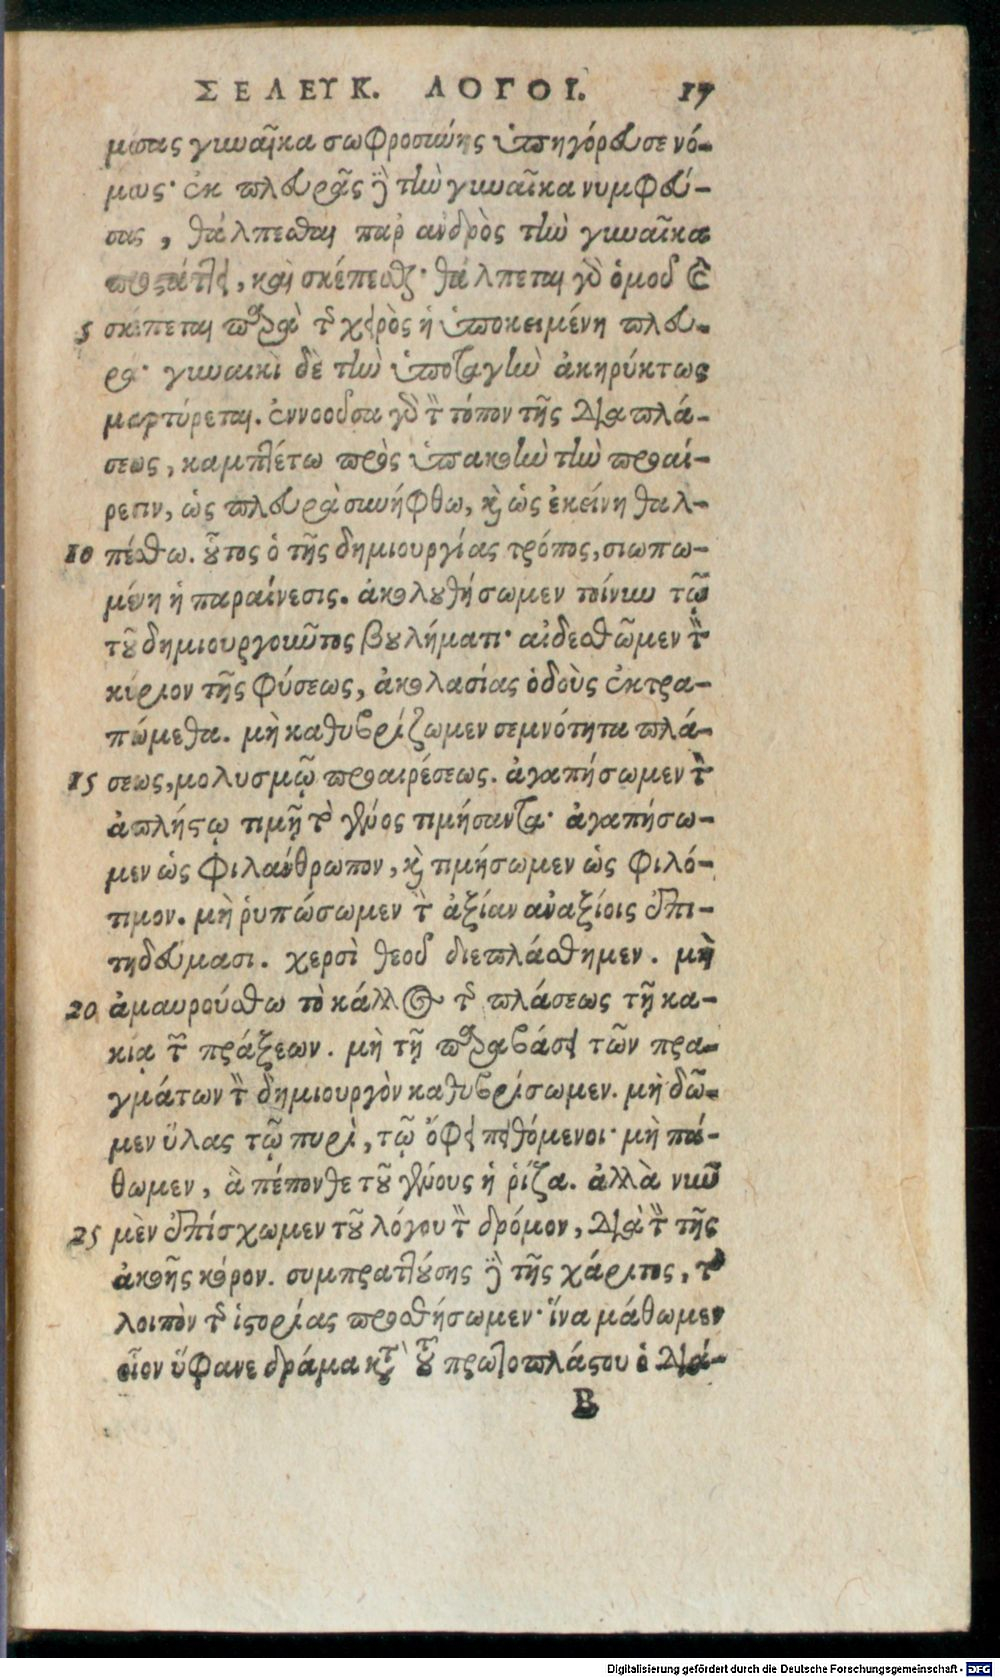 ΣΕΛΕΥΚ. ΛΟΓΟΙ. 17
μώσας γυναῖκα σωφροσύνης ὑπηγόρευσε νό-
μους· ἐκ πλευρᾶς δὲ τὴν γυναῖκα νυμφεύ-
σας, θάλπεσθαι παρ' ἀνδρὸς τὴν γυναῖκα
προστάττει, καὶ σκέπεσθαι· θάλπεται γὰρ ὁμοῦ καὶ
5 σκέπεται παρὰ τῆς χειρὸς ἡ ὑποκειμένη πλευ-
ρά· γυναικὶ δὲ τὴν ὑποταγὴν ἀκηρύκτως
μαρτύρεται. ἐννοοῦσα γὰρ τὸν τόπον τῆς διαπλά-
σεως, καμπτέτω πρὸς ὑπακοὴν τὴν προαί-
ρεσιν, ὡς πλευρὰ συνήφθω, καὶ ὡς ἐκείνη θαλ-
10 πέσθω. οὗτος ὁ τῆς δημιουργίας τρόπος, σιωπω-
μένη ἡ παραίνεσις. ἀκολουθήσωμεν τοίνυν τῷ
τοῦ δημιουργοῦντος βουλήματι· αἰδεσθῶμεν τὸν
κύριον τῆς φύσεως, ἀκολασίας ὁδοὺς ἐκτρα-
πώμεθα. μὴ καθυβρίζωμεν σεμνότητα πλά-
15 σεως, μολυσμῷ προαιρέσεως. ἀγαπήσωμεν τὸν
ἀπλήστῳ τιμῇ τὸ γένος τιμήσαντα· ἀγαπήσω-
μεν ὡς φιλάνθρωπον, καὶ τιμήσωμεν ὡς φιλό-
τιμον. μὴ ῥυπώσωμεν τὴν ἀξίαν ἀναξίοις ἐπι-
τηδεύμασι. χερσὶ θεοῦ διεπλάσθημεν. μὴ
20 ἀμαυρούσθω τὸ κάλλος τῆς πλάσεως τῇ κα-
κίᾳ τῶν πράξεων. μὴ τῇ παραβάσει τῶν πρα-
γμάτων τὸν δημιουργὸν καθυβρίσωμεν. μὴ δῶ-
μεν ὕλας τῷ πυρὶ, τῷ ὄφει πειθόμενοι· μὴ πά-
θωμεν, ἃ πέπονθε τοῦ γένους ἡ ῥίζα. ἀλλὰ νῦν
25 μὲν ἐπίσχωμεν τοῦ λόγου τὸν δρόμον, διὰ τὸν τῆς
ἀκοῆς κόρον. συμπραττούσης δὲ τῆς χάριτος, τὸ
λοιπὸν τῆς ἱστορίας προσθήσωμεν· ἵνα μάθωμεν
οἷον ὕφανε δρᾶμα κατὰ τοῦ πρωτοπλάστου ὁ διά-
B
Digitalisierung gefördert durch die Deutsche Forschungsgemeinschaft - DFG